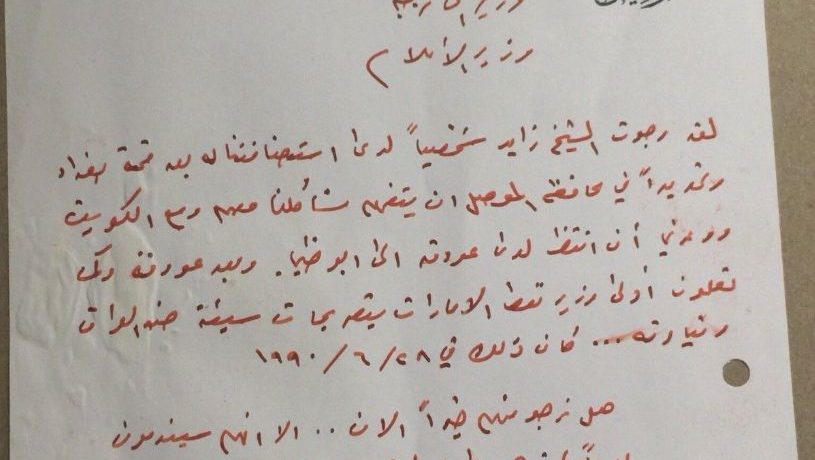 وزير الخارجية
وزير الإعلام
لقد رجوت الشيخ زايد شخصياً لدى استضافتنا له بعد قمة بغداد
وتحديداً في محافظة الموصل ان يتفهم مشاكلنا معهم ومع الكويت
ووعدني أن انتظر لدى عودته الى ابو ظبي. وبعد عودته وكما
تعلمون أدلى وزير نفط الامارات بتصريحات سيئة ضد العراق
وقيادته... كان ذلك في ٢٨/٦/١٩٩٠
هل نرجو منهم خيراً الان .. الا انهم سيندمون